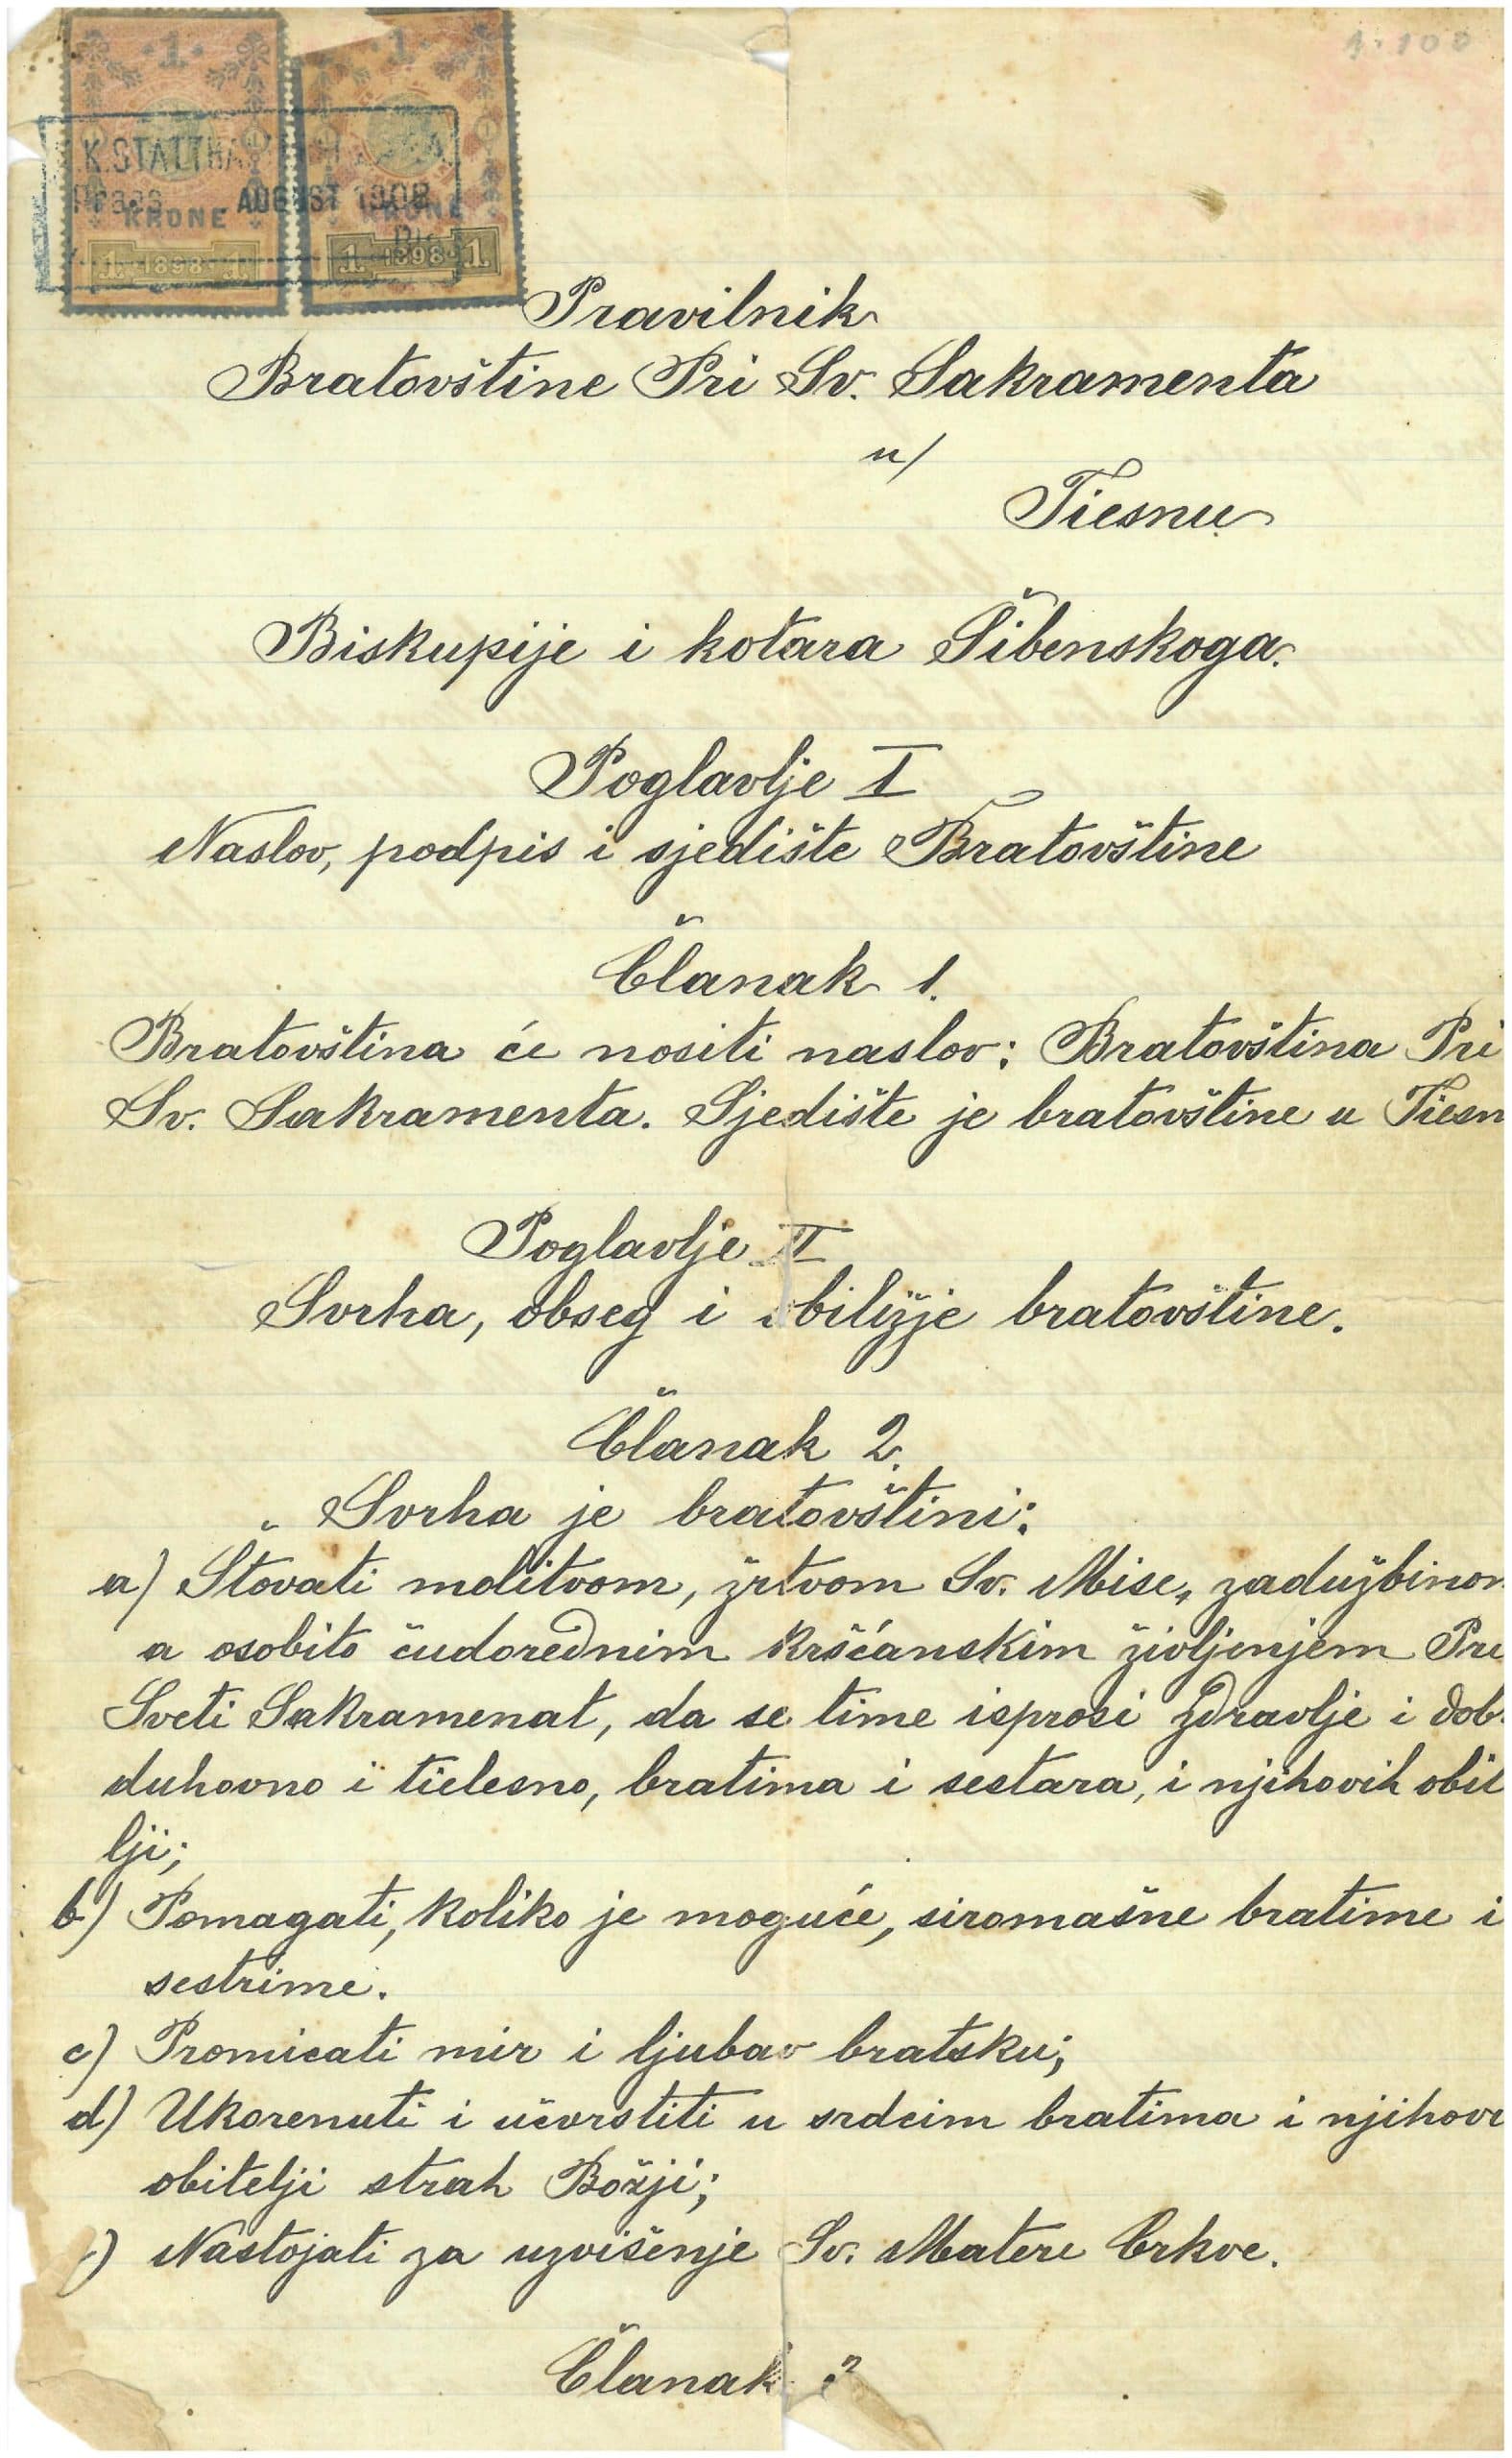 1.100
1 1
K.STATTHA
Praes AUGUST 1908
KRONE KRONE
1. 1898 1. 1. 1898 1.
Pravilnik
Bratovštine Pri Sv. Sakramenta
u/
Tiesnu
Biskupije i kotara Šibenskoga.
Poglavlje I
Naslov, podpis i sjedište Bratovštine
Članak 1.
Bratovština će nositi naslov: Bratovština Pri
Sv. Sakramenta. Sjedište je bratovštine u Tiesn
Poglavlje II
Svrha, obseg i obiližje bratovštine.
Članak 2.
Svrha je bratovštini:
a) Štovati molitvom, žrtvom Sv. Mise, zadužbinom
a osobito ćudorednim kršćanskim življenjem Pri
Sveti Sakramenat, da se time isprosi zdravlje i dob
duhovno i tielesno, bratima i sestara, i njihovih obit
lji;
b) Pomagati, koliko je moguće, siromašne bratime i
sestrime.
c) Promicati mir i ljubav bratsku;
d) Ukorenuti i učvrstiti u srdcim bratima i njihove
obitelji strah Božji;
) Nastojati za uzvišenje Sv. Matere Crkve.
Članak